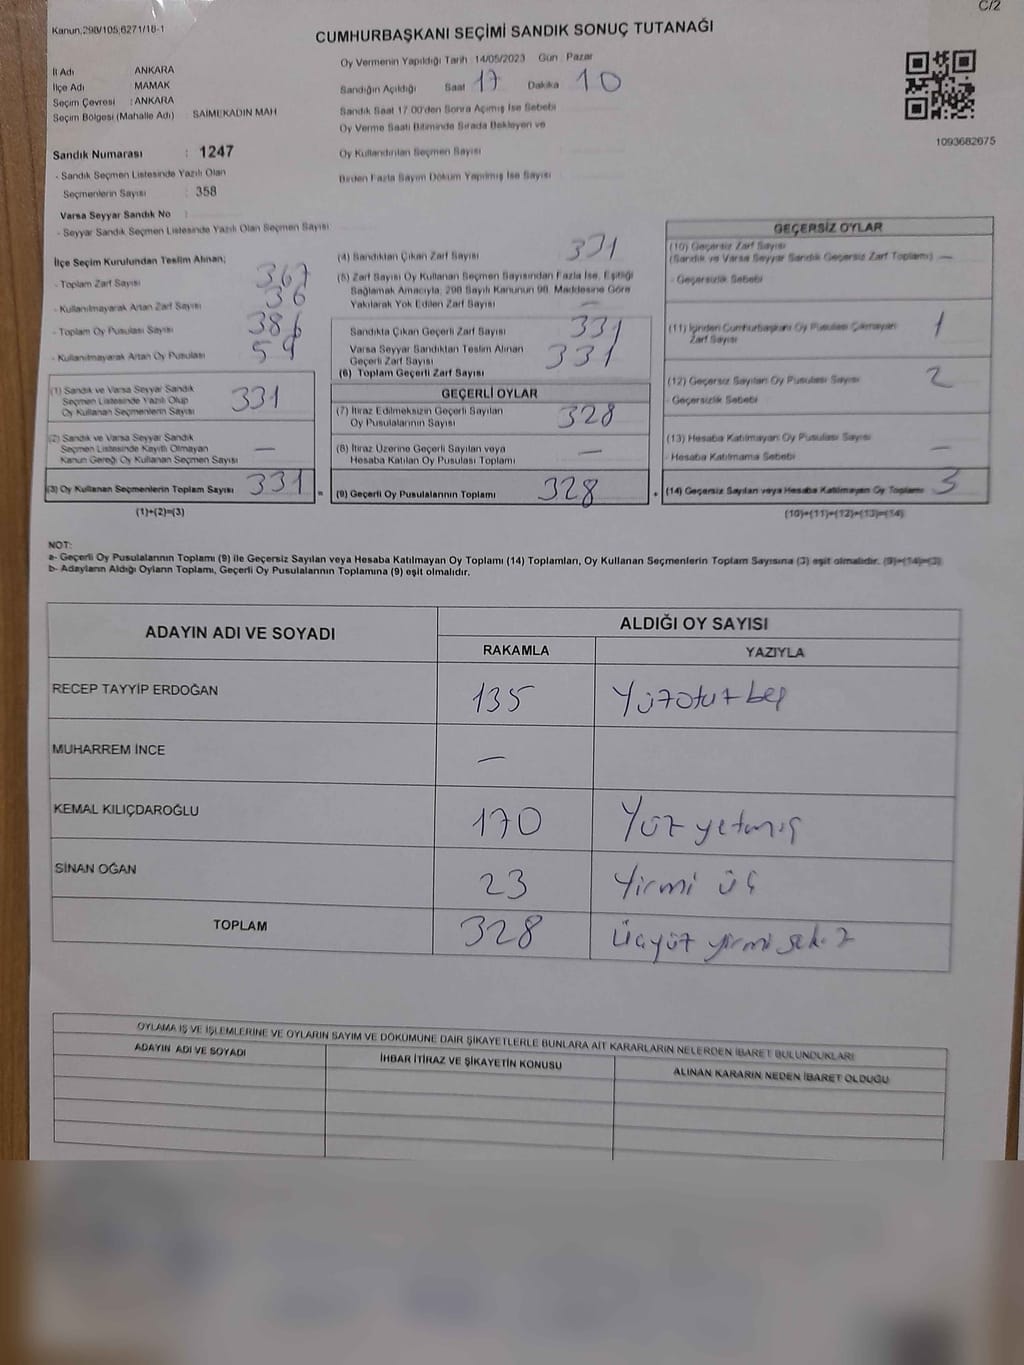 C/2
Kanun;298/105;6271/18-1
CUMHURBAŞKANI SEÇİMİ SANDIK SONUÇ TUTANAĞI
İl Adı ANKARA
İlçe Adı MAMAK
Seçim Çevresi : ANKARA
Seçim Bölgesi (Mahalle Adı) SAİMEKADIN MAH
Oy Vermenin Yapıldığı Tarih : 14/05/2023 Gün : Pazar
Sandığın Açıldığı Saat 17 Dakika 10
Sandık Saat 17:00'den Sonra Açmış İse Sebebi
Oy Verme Saati Bitiminde Sırada Bekleyen ve
Oy Kullandırılan Seçmen Sayısı
Birden Fazla Sayım Döküm Yapılmış İse Sayısı
1093682675
Sandık Numarası : 1247
- Sandık Seçmen Listesinde Yazılı Olan
Seçmenlerin Sayısı : 358
Varsa Seyyar Sandık No :
- Seyyar Sandık Seçmen Listesinde Yazılı Olan Seçmen Sayısı
İlçe Seçim Kurulundan Teslim Alınan;
- Toplam Zarf Sayısı 367
- Kullanılmayarak Artan Zarf Sayısı 36
- Toplam Oy Pusulası Sayısı 386
- Kullanılmayarak Artan Oy Pusulası 59
(1) Sandık ve Varsa Seyyar Sandık
Seçmen Listesinde Yazılı Olup
Oy Kullanan Seçmenlerin Sayısı 331
(2) Sandık ve Varsa Seyyar Sandık
Seçmen Listesinde Kayıtlı Olmayan
Kanun Gereği Oy Kullanan Seçmen Sayısı —
(3) Oy Kullanan Seçmenlerin Toplam Sayısı 331 =
(1)+(2)=(3)
(4) Sandıktan Çıkan Zarf Sayısı 331
(5) Zarf Sayısı Oy Kullanan Seçmen Sayısından Fazla İse, Eşitliği
Sağlamak Amacıyla, 298 Sayılı Kanunun 98. Maddesine Göre
Yakılarak Yok Edilen Zarf Sayısı —
Sandıkta Çıkan Geçerli Zarf Sayısı 331
Varsa Seyyar Sandıktan Teslim Alınan
Geçerli Zarf Sayısı
(6) Toplam Geçerli Zarf Sayısı 331
GEÇERLİ OYLAR
(7) İtiraz Edilmeksizin Geçerli Sayılan
Oy Pusulalarının Sayısı 328
(8) İtiraz Üzerine Geçerli Sayılan veya
Hesaba Katılan Oy Pusulası Toplamı —
(9) Geçerli Oy Pusulalarının Toplamı 328 +
GEÇERSİZ OYLAR
(10) Geçersiz Zarf Sayısı
(Sandık ve Varsa Seyyar Sandık Geçersiz Zarf Toplamı) —
- Geçersizlik Sebebi
(11) İçinden Cumhurbaşkanı Oy Pusulası Çıkmayan
Zarf Sayısı 1
(12) Geçersiz Sayılan Oy Pusulası Sayısı 2
- Geçersizlik Sebebi
(13) Hesaba Katılmayan Oy Pusulası Sayısı —
- Hesaba Katılmama Sebebi
(14) Geçersiz Sayılan veya Hesaba Katılmayan Oy Toplamı 3
(10)+(11)+(12)+(13)=(14)
NOT:
a- Geçerli Oy Pusulalarının Toplamı (9) ile Geçersiz Sayılan veya Hesaba Katılmayan Oy Toplamı (14) Toplamları, Oy Kullanan Seçmenlerin Toplam Sayısına (3) eşit olmalıdır. (9)+(14)=(3)
b- Adayların Aldığı Oyların Toplamı, Geçerli Oy Pusulalarının Toplamına (9) eşit olmalıdır.
ADAYIN ADI VE SOYADI ALDIĞI OY SAYISI
RAKAMLA YAZIYLA
RECEP TAYYİP ERDOĞAN 135 Yüzotuzbeş
MUHARREM İNCE —
KEMAL KILIÇDAROĞLU 170 Yüz yetmiş
SİNAN OĞAN 23 Yirmi üç
TOPLAM 328 Üçyüz yirmi sekiz
OYLAMA İŞ VE İŞLEMLERİNE VE OYLARIN SAYIM VE DÖKÜMÜNE DAİR ŞİKAYETLERLE BUNLARA AİT KARARLARIN NELERDEN İBARET BULUNDUKLARI
ADAYIN ADI VE SOYADI İHBAR İTİRAZ VE ŞİKAYETİN KONUSU ALINAN KARARIN NEDEN İBARET OLDUĞU